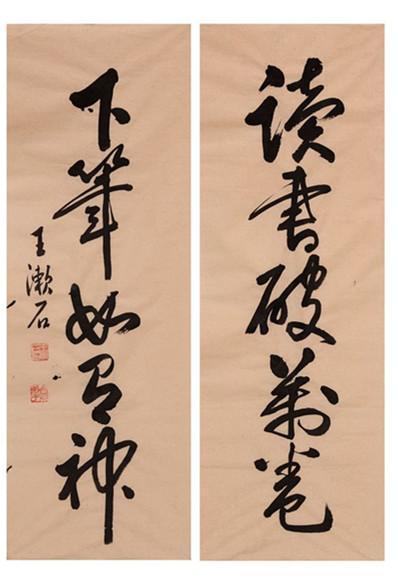 读书破萬卷
下筆如有神
王漱石